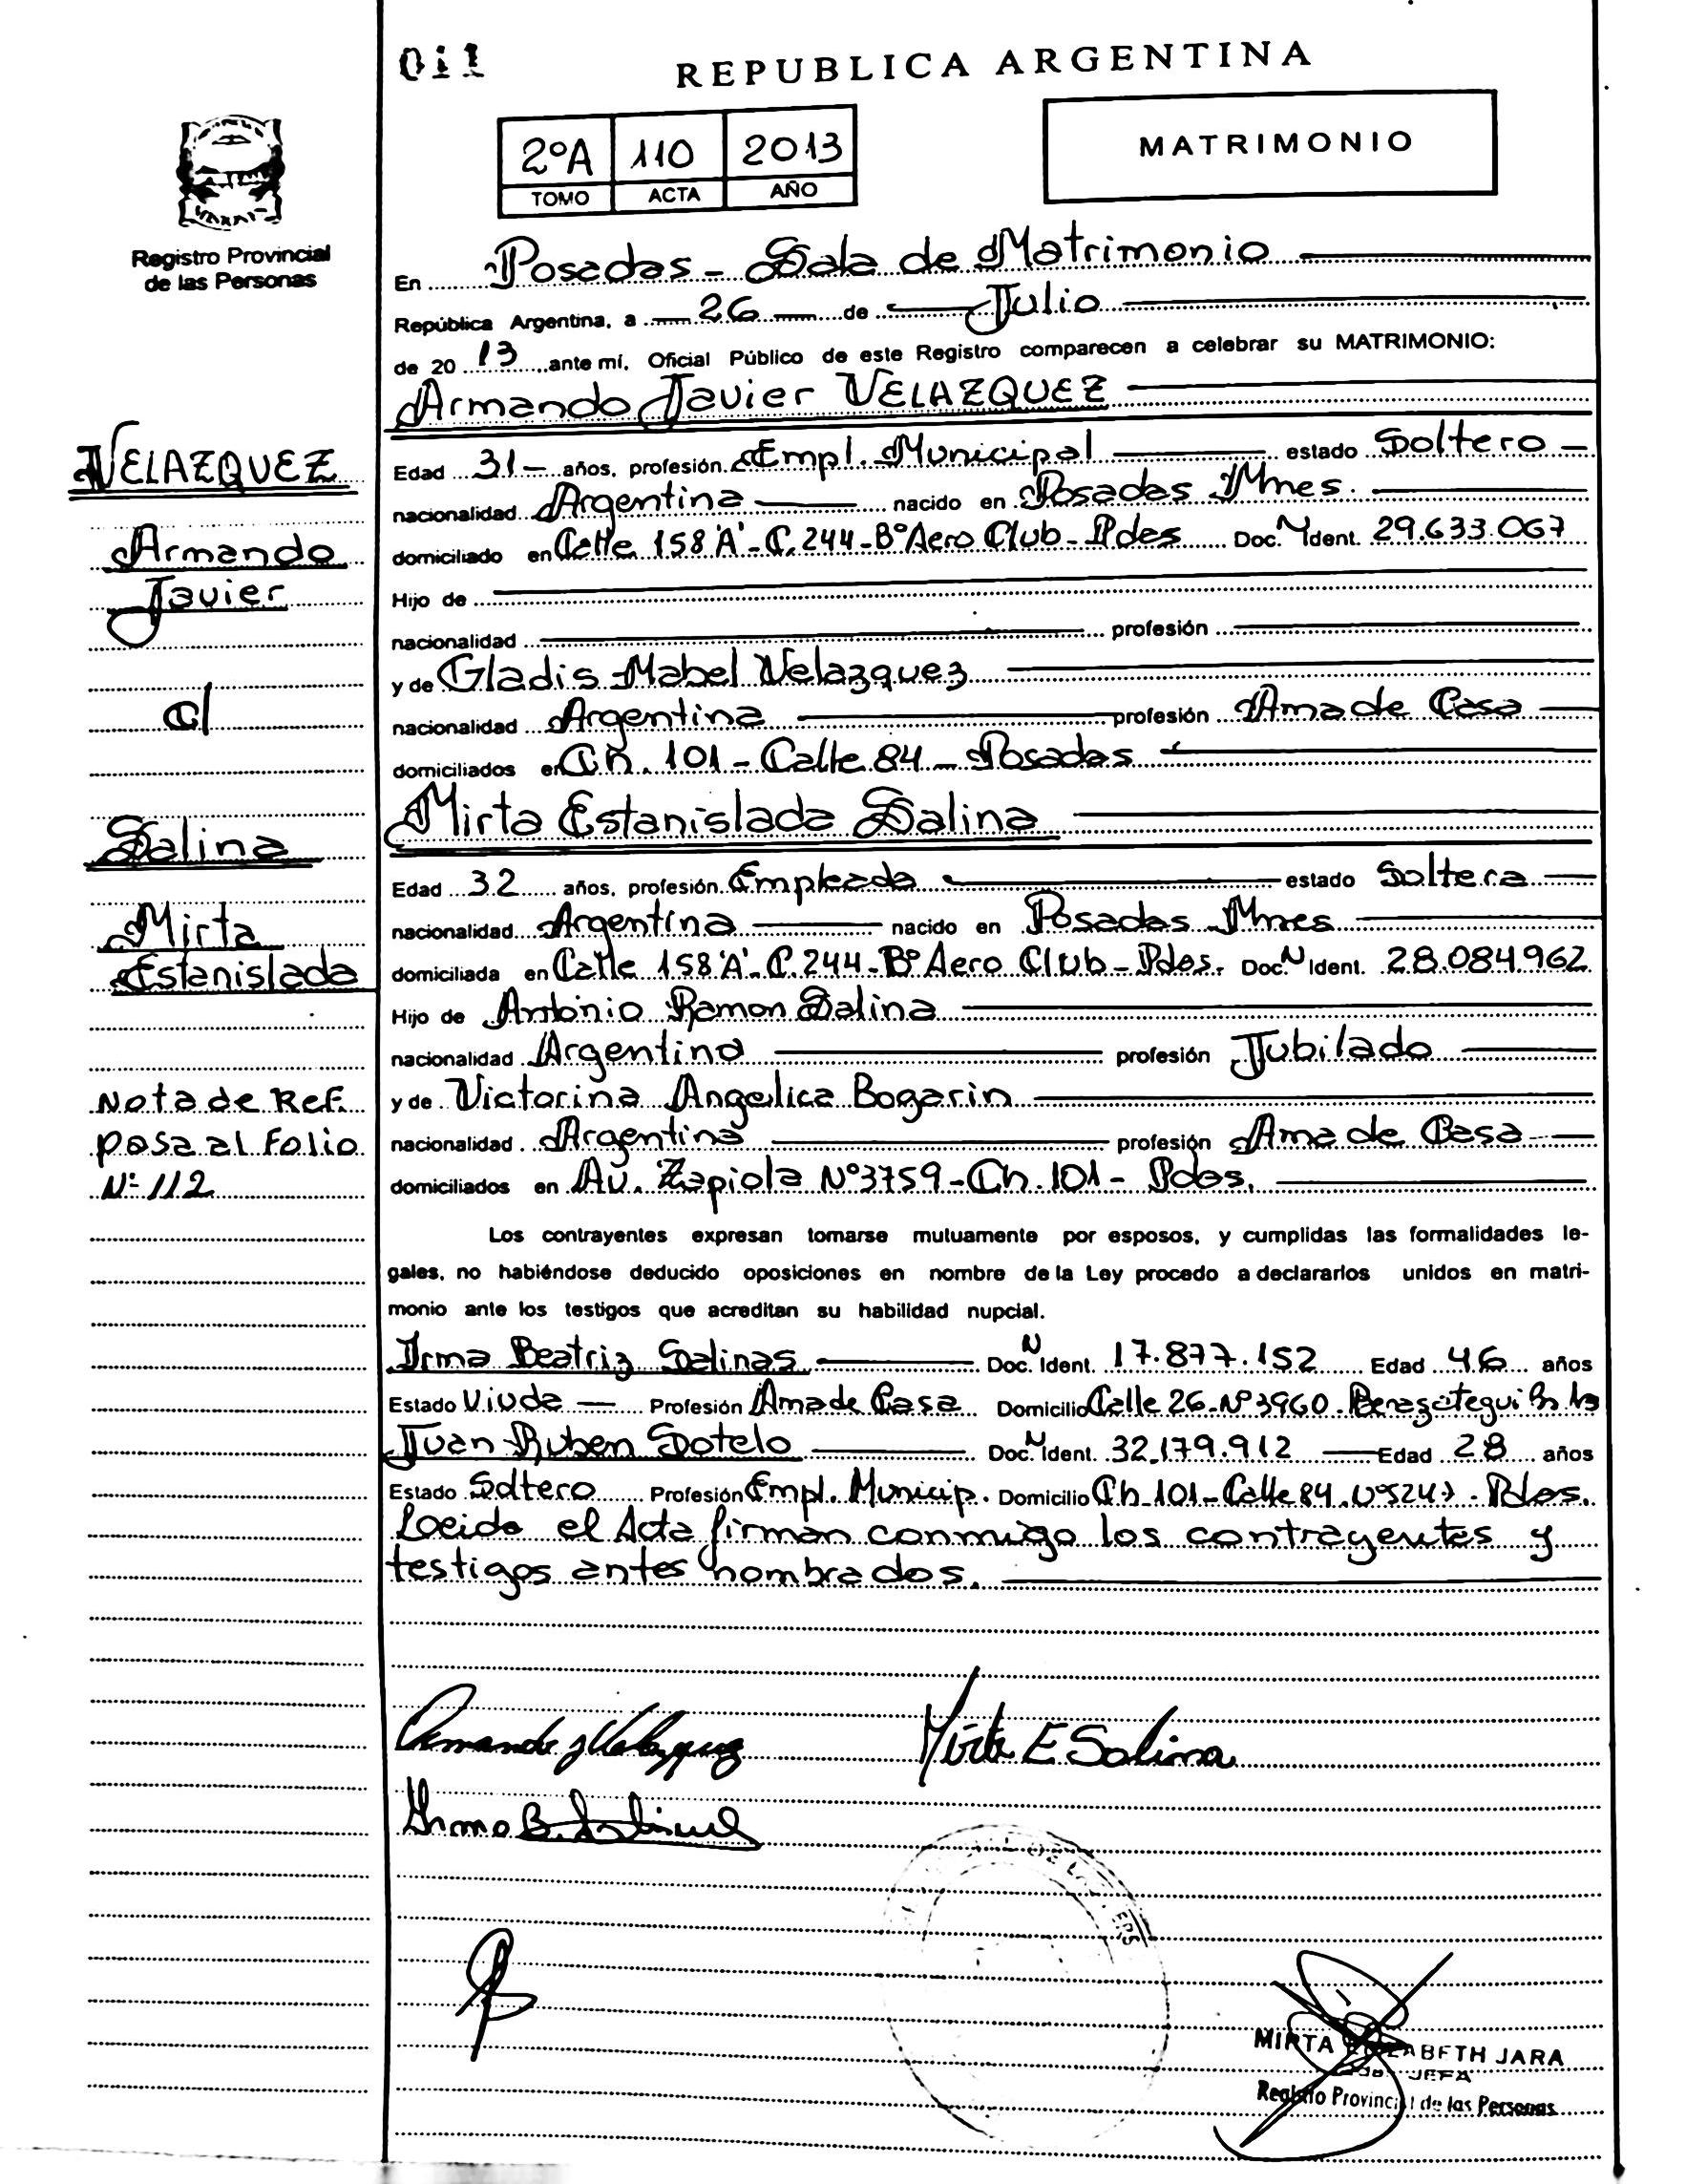 011
REPUBLICA ARGENTINA
2ºA 110 2013
TOMO ACTA AÑO
MATRIMONIO
Registro Provincial
de las Personas
En Posadas - Sala de Matrimonio
República Argentina, a 26 de Julio
de 2013 ante mí, Oficial Público de este Registro comparecen a celebrar su MATRIMONIO:
Armando Javier VELAZQUEZ
Edad 31 años, profesión Empl. Municipal estado Soltero
nacionalidad Argentina nacido en Posadas Mnes.
domiciliado en Calle 158 'A' - C. 244 - Bº Aero Club - Pdas Doc. N Ident. 29.633.067
Hijo de
nacionalidad profesión
y de Gladis Mabel Velazquez
nacionalidad Argentina profesión Ama de Casa
domiciliados en Ch. 101 - Calle 84 - Posadas
Mirta Estanislada Salina
Edad 32 años, profesión Empleada estado Soltera
nacionalidad Argentina nacido en Posadas Mnes
domiciliada en Calle 158 'A' - C. 244 - Bº Aero Club - Pdas. Doc. N Ident. 28.084.962
Hijo de Antonio Ramon Salina
nacionalidad Argentino profesión Jubilado
y de Victorina Angelica Bogarin
nacionalidad Argentina profesión Ama de Casa
domiciliados en Av. Zapiola Nº 3759 - Ch. 101 - Pdas.
Los contrayentes expresan tomarse mutuamente por esposos, y cumplidas las formalidades le-
gales, no habiéndose deducido oposiciones en nombre de la Ley procedo a declararlos unidos en matri-
monio ante los testigos que acreditan su habilidad nupcial.
Irma Beatriz Salinas Doc. N Ident. 17.877.152 Edad 46 años
Estado Viuda Profesión Ama de Casa Domicilio Calle 26 - Nº 3960 - Berazategui
Juan Ruben Sotelo Doc. N Ident. 32.179.912 Edad 28 años
Estado Soltero Profesión Empl. Municip. Domicilio Ch. 101 - Calle 84 - Nº 5247 - Pdas.
Leida el Acta firman conmigo los contrayentes y
testigos antes nombrados.
VELAZQUEZ
Armando
Javier
C/
Salina
Mirta
Estanislada
Nota de Ref.
pasa al Folio
Nº 112
Armando J Velazquez
Mirta E Salina
Irma B. Salinas
MIRTA ELIZABETH JARA
JEFA
Registro Provincial de las Personas